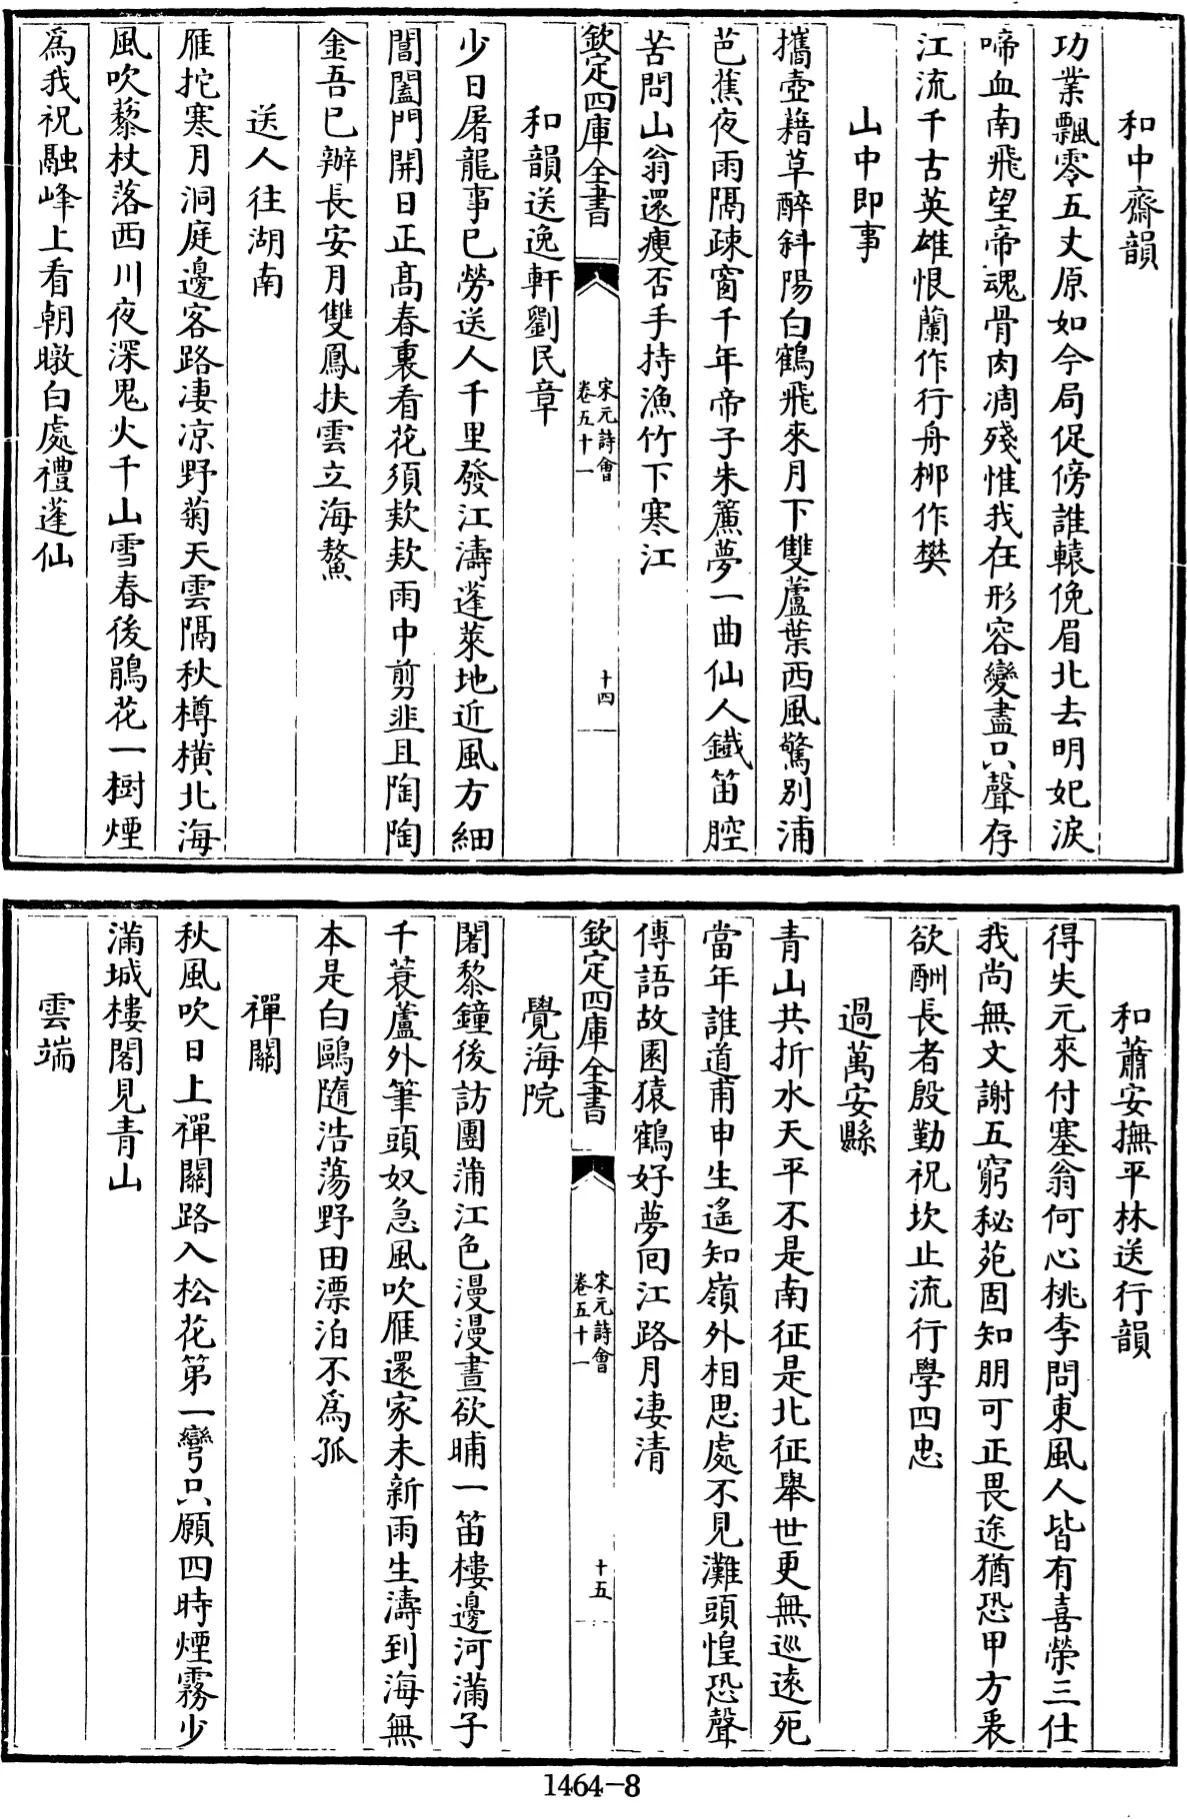 和中齋韻
功業飄零五丈原如今局促傍誰轅俛眉北去明妃淚
啼血南飛望帝魂骨肉凋殘惟我在形容變盡只聲存
江流千古英雄恨蘭作行舟栁作樊
山中即事
攜壺藉草醉斜陽白鶴飛來月下雙蘆葉西風驚别浦
芭蕉夜雨隔疎窗千年帝子朱簾夢一曲仙人鐵笛腔
苦問山翁還瘦否手持漁竹下寒江
欽定四庫全書
宋元詩會
卷五十一
十四
和韻送逸軒劉民章
少日屠龍事已勞送人千里發江濤蓬萊地近風方細
閶闔門開日正髙春裏看花須欵欵雨中剪韭且陶陶
金吾已辦長安月雙鳳扶雲立海鰲
送人往湖南
雁拕寒月洞庭邊客路凄凉野菊天雲隔秋樽横北海
風吹藜杖落西川夜深鬼火千山雪春後鵑花一樹煙
為我祝融峰上看朝暾白處禮蓬仙
和蕭安撫平林送行韻
得失元來付塞翁何心桃李問東風人皆有喜榮三仕
我尚無文謝五窮秘苑固知朋可正畏途猶恐甲方裒
欲酬長者殷勤祝坎止流行學四忠
過萬安縣
青山共折水天平不是南征是北征舉世更無巡逺死
當年誰道甫申生遙知嶺外相思處不見灘頭惶恐聲
傳語故園猿鶴好夢囘江路月凄清
欽定四庫全書
宋元詩會
卷五十一
十五
覺海院
闍黎鐘後訪團蒲江色漫漫晝欲晡一笛樓邊河滿子
千蓑蘆外筆頭奴急風吹雁還家未新雨生濤到海無
本是白鷗隨浩蕩野田漂泊不為孤
禪關
秋風吹日上禪關路入松花第一彎只願四時煙霧少
滿城樓閣見青山
雲端
1464-8